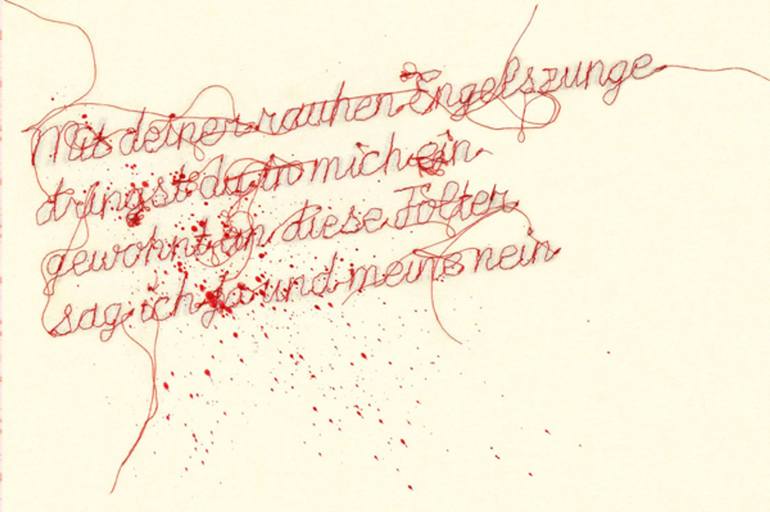 Mit deiner rauhen Engelszunge
dringst du in mich ein
gewohnt an diese Folter
sag ich ja und meine nein